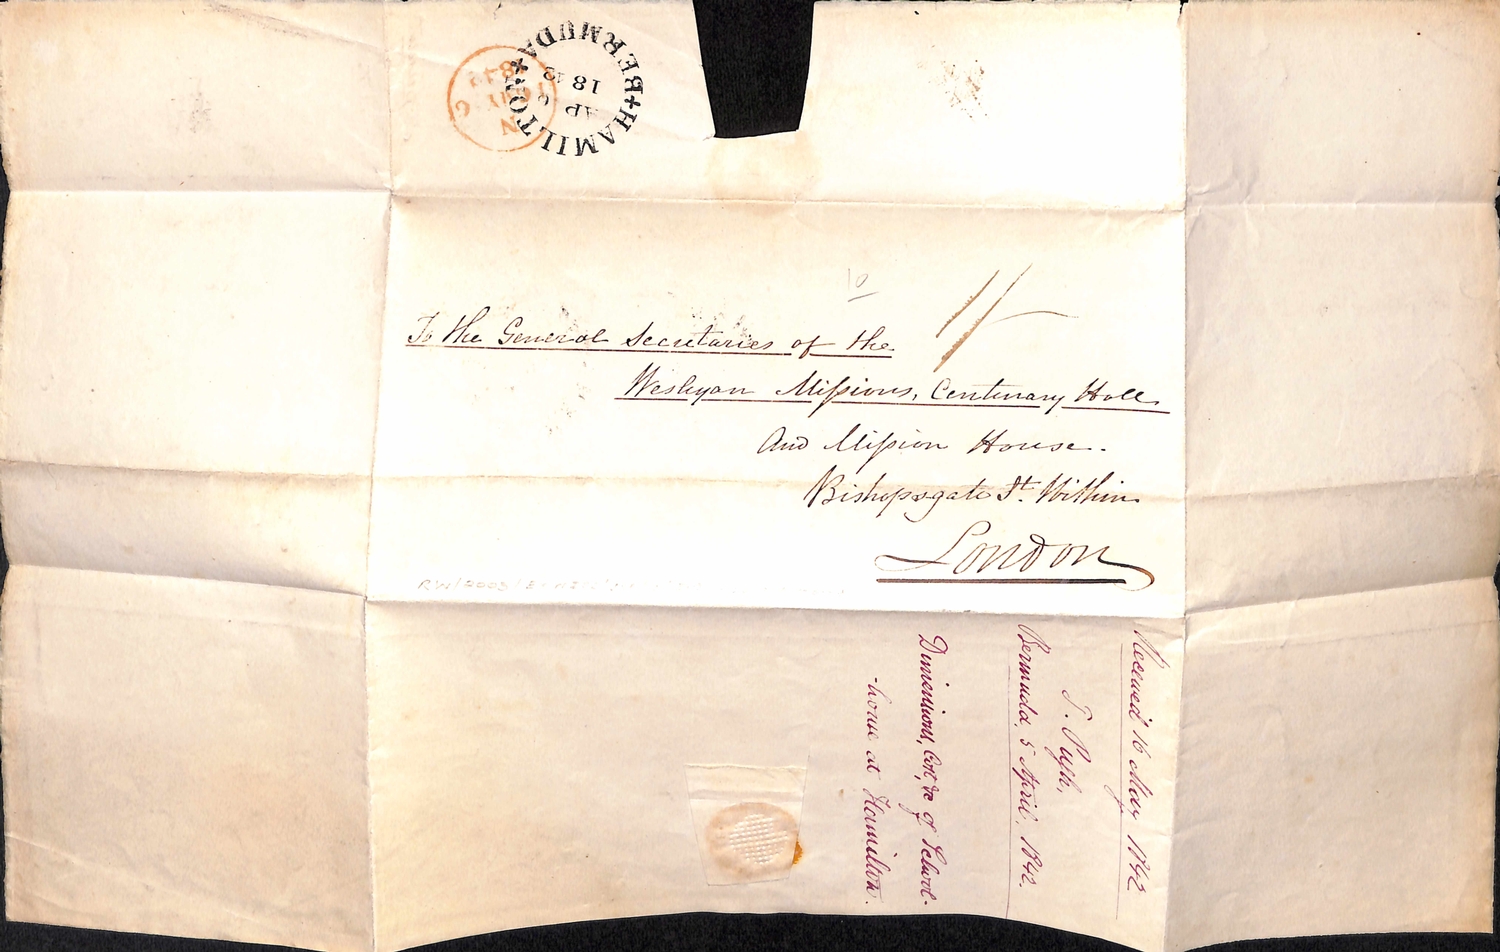 + HAMILTON + BERMUDA
AP
1842
N
MY
1842
1/-
10
To the General Secretaries of the
Wesleyan Missions, Centenary Hall
And Mission House.
Bishopsgate St. Within
London
Received 16 May 1842
T. Pugh,
Bermuda, 5 April, 1842.
Dimensions, Cost, &c of School-
-house at Hamilton.